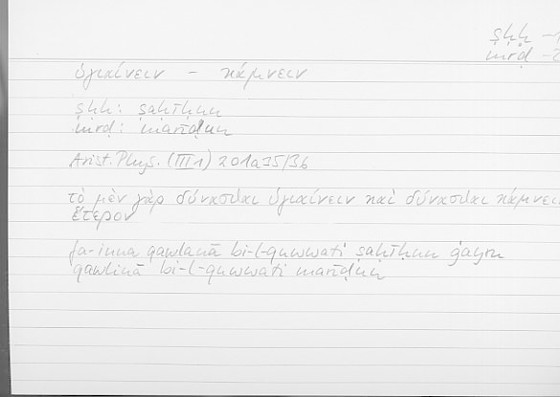 ṣḥḥ
mrḍ
ὑγιαίνειν – κάμνειν
ṣḥḥ: ṣaḥīḥun
mrḍ: marīḍun
Arist. Phys. (III 1) 201a35/36
τὸ μὲν γὰρ δύνασθαι ὑγιαίνειν καὶ δύνασθαι κάμνειν
ἕτερον
fa-inna qawlanā bi-l-quwwati ṣaḥīḥun ġayru
qawlinā bi-l-quwwati marīḍun